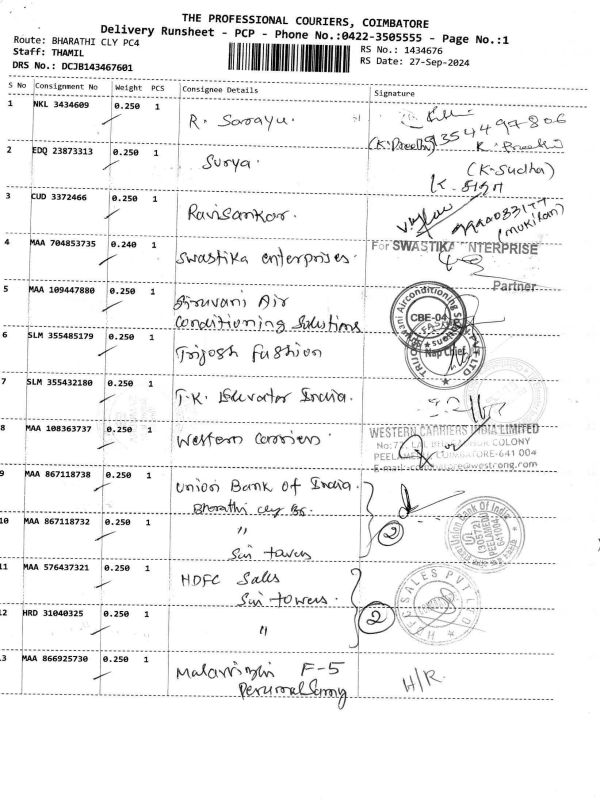 THE PROFESSIONAL COURIERS, COIMBATORE
Delivery Runsheet - PCP - Phone No.:0422-3505555 - Page No.:1
Route: BHARATHI CLY PC4
Staff: THAMIL
DRS No.: DCJB143467601
RS No.: 1434676
RS Date: 27-Sep-2024
S No Consignment No Weight PCS Consignee Details Signature
1 NKL 3434609 0.250 1 R. Sarayu.
(K. Preethi)
2 EDQ 23873313 0.250 1 Surya.
(K-Sudha)
3 CUD 3372466 0.250 1 Ravisankar.
(Mukilan)
4 MAA 704853735 0.240 1 Swastika enterprises.
For SWASTIKA ENTERPRISE
Partner
5 MAA 109447880 0.250 1 Siruvani Air
Conditioning Solutions
CBE-04
6 SLM 355485179 0.250 1 Trijosh Fashion
7 SLM 355432180 0.250 1 T.K. Elevator India.
8 MAA 108363737 0.250 1 Western Carriers
WESTERN CARRIERS INDIA LIMITED
COLONY
PEELAMEDU, COIMBATORE-641 004
9 MAA 867118738 0.250 1 Union Bank of India.
Bharathi cly Br.
2
10 MAA 867118732 0.250 1 "
Sri towers
Union Bank Of India
11 MAA 576437321 0.250 1 HDFC Sales
Sri towers.
HDFC SALES PVT LTD
12 HRD 31040325 0.250 1 "
2
13 MAA 866925730 0.250 1 Malarvizhi F-5
Perumalsamy
H/R.